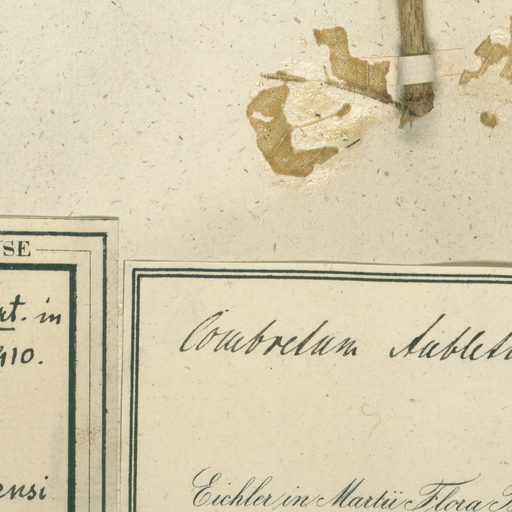 SE
t. in
410.
ensi
Combretum Aublet
Eichler in Martii Flora